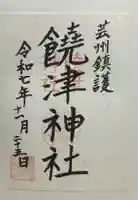 芸州鎮護
饒津神社
令和元年十一月二十五日